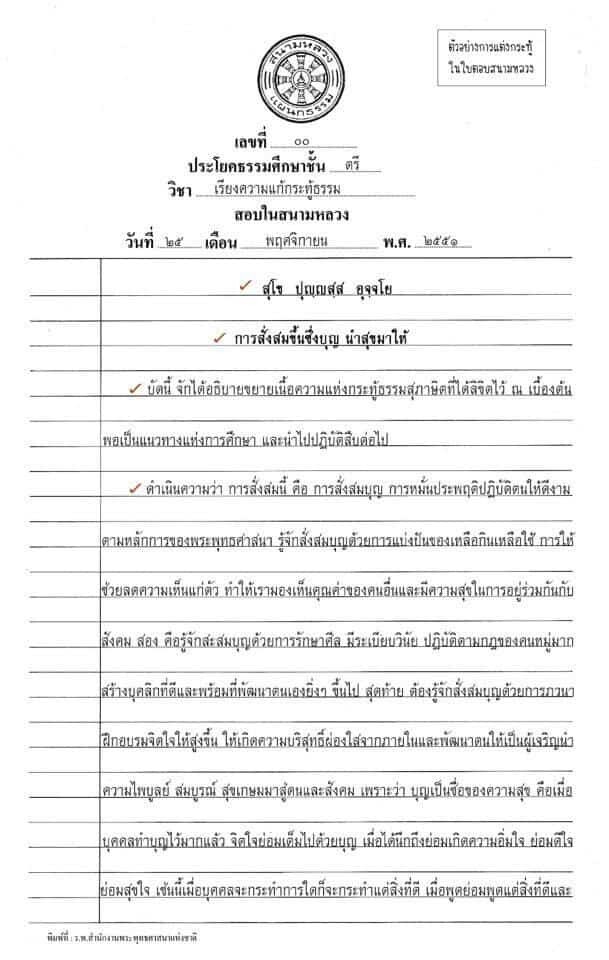 ตัวอย่างการแต่งกระทู้
ในใบตอบสนามหลวง
สนามหลวง
แผนกธรรม
เลขที่ ๐๐
ประโยคธรรมศึกษาชั้น ตรี
วิชา เรียงความแก้กระทู้ธรรม
สอบในสนามหลวง
วันที่ ๒๕ เดือน พฤศจิกายน พ.ศ. ๒๕๕๑
สุโข ปุญฺญสฺส อุจฺจโย
การสั่งสมขึ้นซึ่งบุญ นำสุขมาให้
บัดนี้ จักได้อธิบายขยายเนื้อความแห่งกระทู้ธรรมสุภาษิตที่ได้ลิขิตไว้ ณ เบื้องต้น
พอเป็นแนวทางแห่งการศึกษา และนำไปปฏิบัติสืบต่อไป
ดำเนินความว่า การสั่งสมนี้ คือ การสั่งสมบุญ การหมั่นประพฤติปฏิบัติตนให้ดีงาม
ตามหลักการของพระพุทธศาสนา รู้จักสั่งสมบุญด้วยการแบ่งปันของเหลือกินเหลือใช้ การให้
ช่วยลดความเห็นแก่ตัว ทำให้เรามองเห็นคุณค่าของคนอื่นและมีความสุขในการอยู่ร่วมกันกับ
สังคม สอง คือรู้จักสะสมบุญด้วยการรักษาศีล มีระเบียบวินัย ปฏิบัติตามกฎของคนหมู่มาก
สร้างบุคลิกที่ดีและพร้อมที่พัฒนาตนเองยิ่งๆ ขึ้นไป สุดท้าย ต้องรู้จักสั่งสมบุญด้วยการภวนา
ฝึกอบรมจิตใจให้สูงขึ้น ให้เกิดความบริสุทธิ์ผ่องใสจากภายในและพัฒนาตนให้เป็นผู้เจริญนำ
ความไพบูลย์ สมบูรณ์ สุขเกษมมาสู่ตนและสังคม เพราะว่า บุญเป็นชื่อของความสุข คือเมื่อ
บุคคลทำบุญไว้มากแล้ว จิตใจย่อมเต็มไปด้วยบุญ เมื่อได้นึกถึงย่อมเกิดความอิ่มใจ ย่อมดีใจ
ย่อมสุขใจ เช่นนี้เมื่อบุคคลจะกระทำการใดก็จะกระทำแต่สิ่งที่ดี เมื่อพูดย่อมพูดแต่สิ่งที่ดีและ
พิมพ์ที่ : ร.พ.สำนักงานพระพุทธศาสนาแห่งชาติ